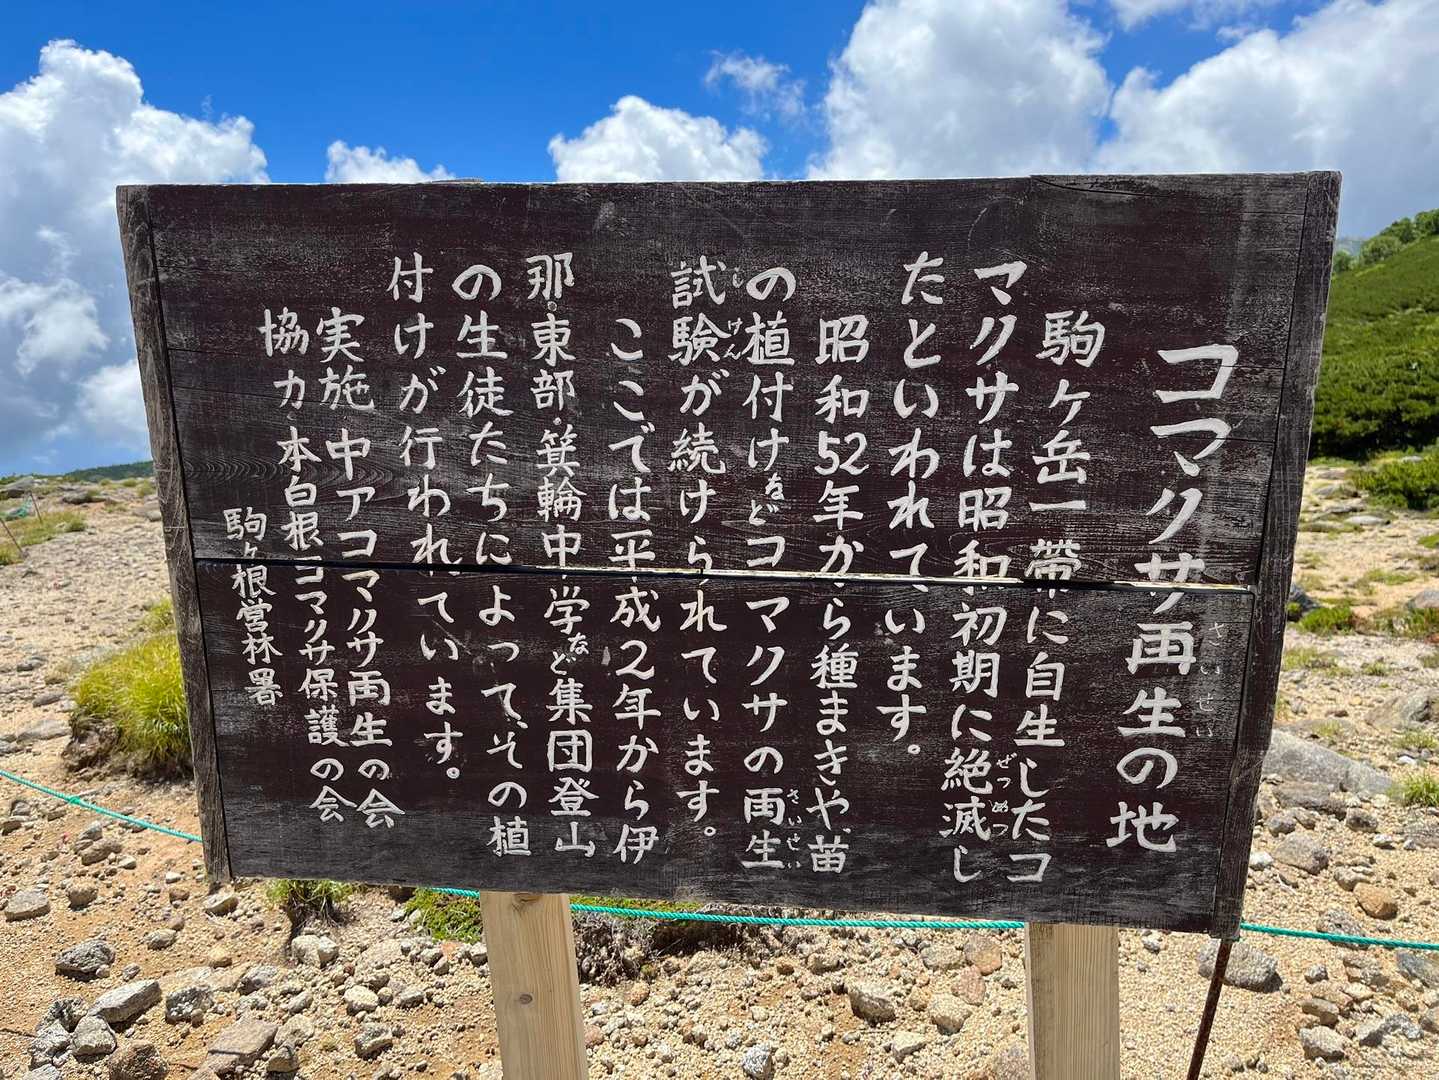 コマクサ再生の地
さいせい
駒ヶ岳一帯に自生したコ
マクサは昭和初期に絶滅し
ぜつめつ
たといわれています。
昭和52年から種まきや苗
の植付けなどコマクサの再生
さいせい
試験が続けられています。
しけん
ここでは平成2年から伊
那・東部・箕輪中・学など集団登山
の生徒たちによって、その植
付けが行われています。
実施 中アコマクサ再生の会
協力 本白根コマクサ保護の会
駒ヶ根営林署